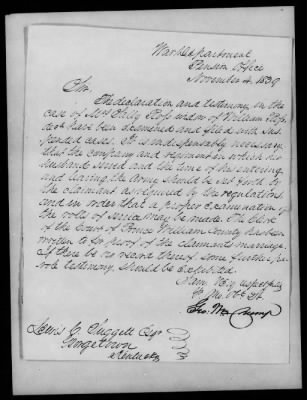 War Department
Pension Office
November 4. 1839
Sir.
The declaration and testimony in the
case of Mrs. widow of William
decd have been examined and filed with Sus
pended cases. It is indispensably necessary
that the company and regiment in which her
husband served and the time of his entering
and leaving the Army should be set forth by
the claimant as required by the regulations,
and in order that a proper examination of
the rolls of service may be made. The Clerk
of the Court of Prince William County has been
written to for proof of the claimants marriage.
If there be no record thereof some further pa-
role testimony, should be exhibited.
I am, very respectfully
Yr. Mo. Obt. St.
Geo. W. Crump
Lewis C. Suggett Esqr
Georgetown
Kentucky